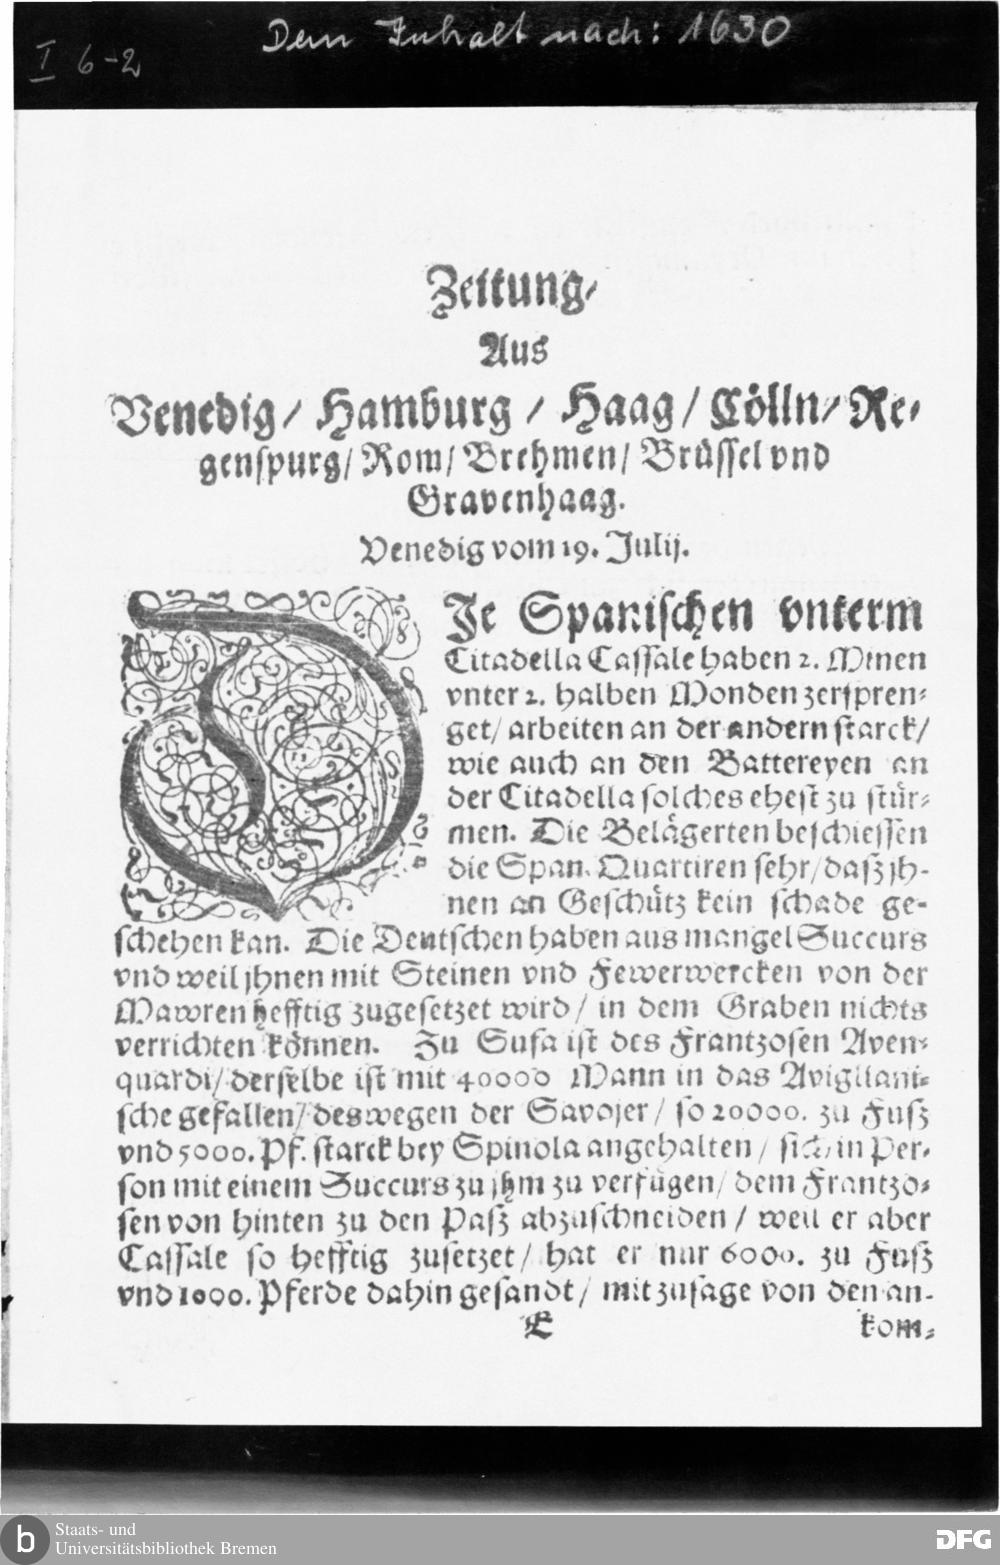 Dem Inhalt nach: 1630
I 6-2
Zeitung/
Aus
Venedig/ Hamburg / Haag / Cölln/ Re-
genspurg/ Rom/ Brehmen/ Brüssel vnd
Gravenhaag.
Venedig vom 19. Julij.
DIe Spanischen vnterm
Citadella Cassale haben 2. Minen
vnter 2. halben Monden zerspren-
get/ arbeiten an der andern starck/
wie auch an den Battereyen an
der Citadella solches ehest zu stür-
men. Die Belägerten beschiessen
die Span. Quartiren sehr/ daß jh-
nen an Geschütz kein schade ge-
schehen kan. Die Deutschen haben aus mangel Succurs
vnd weil jhnen mit Steinen vnd Fewerwercken von der
Mawren hefftig zugesetzet wird/ in dem Graben nichts
verrichten können. Zu Susa ist des Frantzosen Aven-
quardi/ derselbe ist mit 40000 Mann in das Avigliani-
sche gefallen/ deswegen der Savojer/ so 20000. zu Fuß
vnd 5000. Pf. starck bey Spinola angehalten / sich in Per-
son mit einem Succurs zu jhm zu verfügen/ dem Frantzo-
sen von hinten zu den Paß abzuschneiden / weil er aber
Cassale so hefftig zusetzet/ hat er nur 6000. zu Fuß
vnd 1000. Pferde dahin gesandt/ mit zusage von den an-
E kom-
b Staats- und
Universitätsbibliothek Bremen
DFG